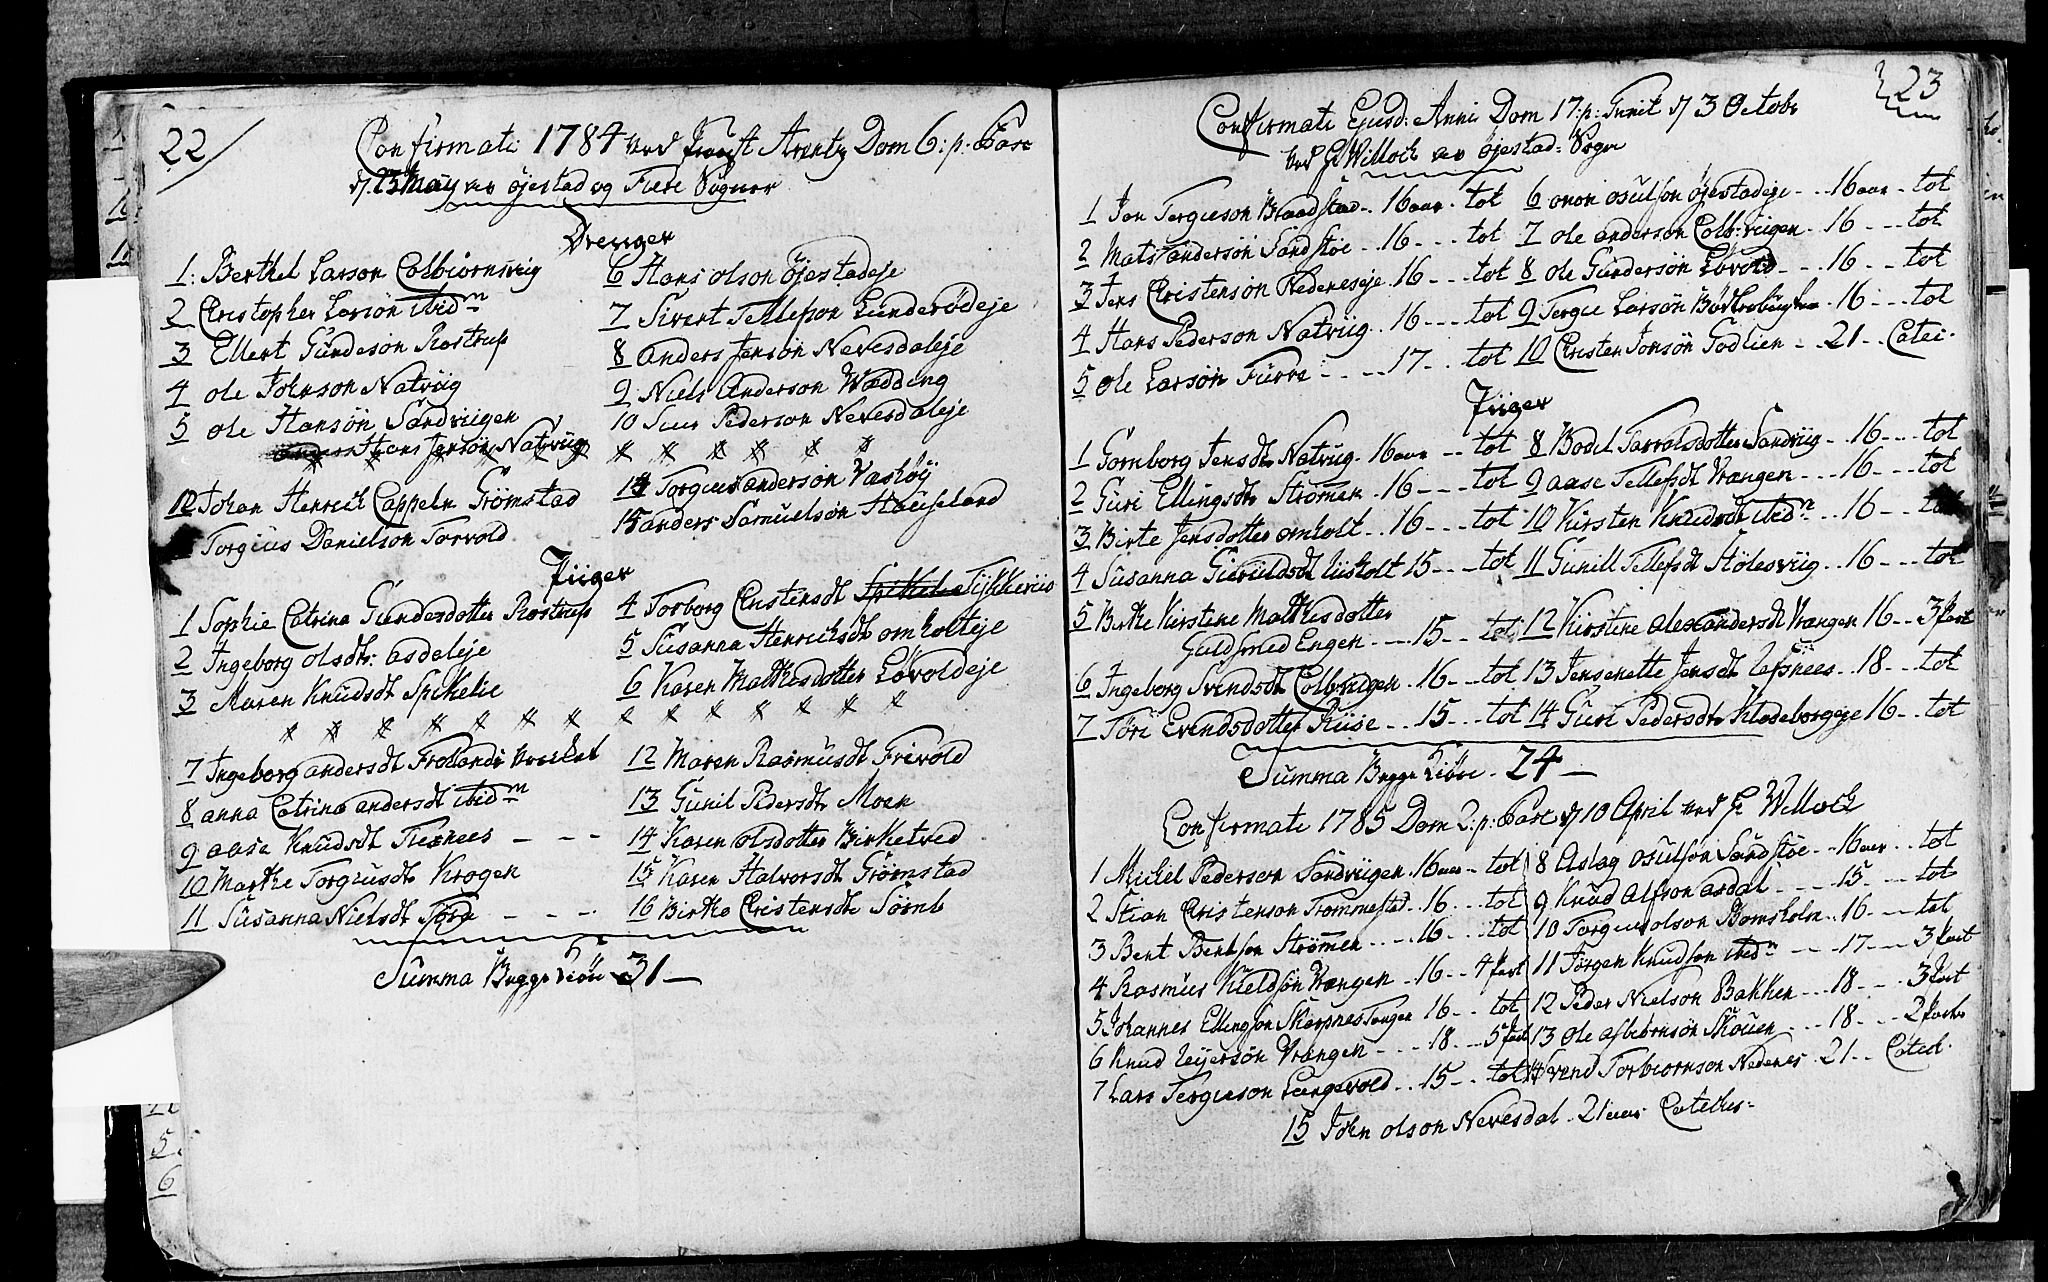 22/
Confirmati 1784 ved Provst Arentz Dom 6: p. Pasc
d. 23 May av Øjestad og Fiere Sogner
Drenger
1: Berthel Larson Colbiornsviig
2 Christopher Larsön ibidm
3 Ellert Gundesön Rostrup
4 ole Johnson Natviig
5 ole Hansön Sandviigen
Hans Jensön Natviig
12 Johan Henrich Cappeln Grömstad
Torgius Danielson Torvold
6 Hans olson Öjestadeje
7 Sivert Tellefson Lunderödeje
8 anders Jensön Nevesdaleje
9 Niels Anderson Wædding
10 Siur Pederson Nevesdaleje
14 Torgius anderson Vasköy
15 anders Samuelsön Hauseland
Piiger
1 Sophie Catrina Gundersdotter Rostrup
2 Ingeborg olsdtr: asdaleje
3 Maren Knudsdt Spikelie
4 Torborg Christensdt Spikelie
5 Susanna Henrichsdt omholteje
6 Karen Mathisdotter Lövoldeje
7 Ingeborg andersdt Frolands Værket
8 anna Catrina andersdt ibidm
9 aase Knudsdt Trexnees - - -
10 Marthe Torgiusdt Krogen
11 Susanna Nielsdt - - -
12 Maren Rasmusdt Frivold
13 Gunil Pedersdt Moen
14 Karen olsdotter Birketved
15 Karen Halvorsdt Grömstad
16 Birthe Christensdt
Summa Begge Kiön 31 —
23
Confirmati Ejusd: Anni Dom 17: p: Trinit d 3 Octobr
ved H Willoch av Øjestad: Sogn
1 Jon Tergieson Braadstad .. 16 aar - tot
2 Mats anderson Sandstöe .. 16 - - - tot
3 Jens Christenson Nedeneseje 16 - - - tot
4 Hans Pederson Natviig .. 16 - - - tot
5 ole Larsön Fürre - - - 17 - - tot
6 onon osulson Öjestadeje - - 16 aar - tot
7 ole anderson Colb:viigen - 16 - - - tot
8 ole Gundersön Lövold - - 16 - - tot
9 Tergie Larsön 16 - - tot
10 Christen Jonsön Godlien - - 21 - - Catei -
Piiger
1 Gornborg Jensdt Natviig - 16 aar - tot
2 Guri Ellingsdt Strömen 16 - - - tot
3 Birte Jensdotter omholt .. 16 - - - tot
4 Susanna Gierüldsdt Uüsholt 15 - - - tot
5 Birthe Kirstine Mathisdotter
Guldsmed Engen - - - 15 - - tot
6 Ingeborg Svendsdt Colbviigen . 16 - - tot
7 Töre Evendsdotter Riise - - 15 - - tot
8 Bodel Tarroldsdotter Sandviig - - 16 - - - tot
9 aase Tellefsdt Vrængen - - 16 - - - tot
10 Kirsten Knudsdt ibidm - - 16 - - tot
11 Gunill Tellefsdt Stölesviig - - 16 - - - tot
12 Kirstine Alexandersdt Vrængen 16 - - 3 Part
13 Jensenette Jensdt Refsnees - 18 - - tot
14 Guri Pedersdt Klodeborgeje 16 - - tot
Summa Begge Kiön - 24 —
Confirmati 1785 Dom 2: p: Pasc d 10 April ved H Willoch
1 Michel Pederson Sandviigen 16 aar - tot
2 Stian Christenson Trommestad - 16 - - - tot
3 Bent Bentson Strömen - - - 16 - - - tot
4 Rasmus Kieldsön Vrængen - 16 - - 4 Part
5 Johannes Ellingson Skarpnes Tangen 16 - - tot
6 Knud Reijersön Vrængen - - - 18 - - 5 Part
7 Lars Tergieson Langevold .. 15 - - tot
8 Aslag osulson Sandstöe - - 16 aar - - tot
9 Knud Alfson asdal - - - 15 - - - tot
10 Torgius olson Bomsholm .. 16 - - - tot
11 Jörgen Knudson ibidm - - - 17 - - 3 Part
12 Peder Nielson Bakken - - - 18 - - - 3 Part
13 Ole asbiornsön Skouen - - - 18 - - - 2 Parter
14 Evend Torbiornson Nedenes . 21 - - Catech.
15 John olson Nevesdal - 21 aar Catechis-